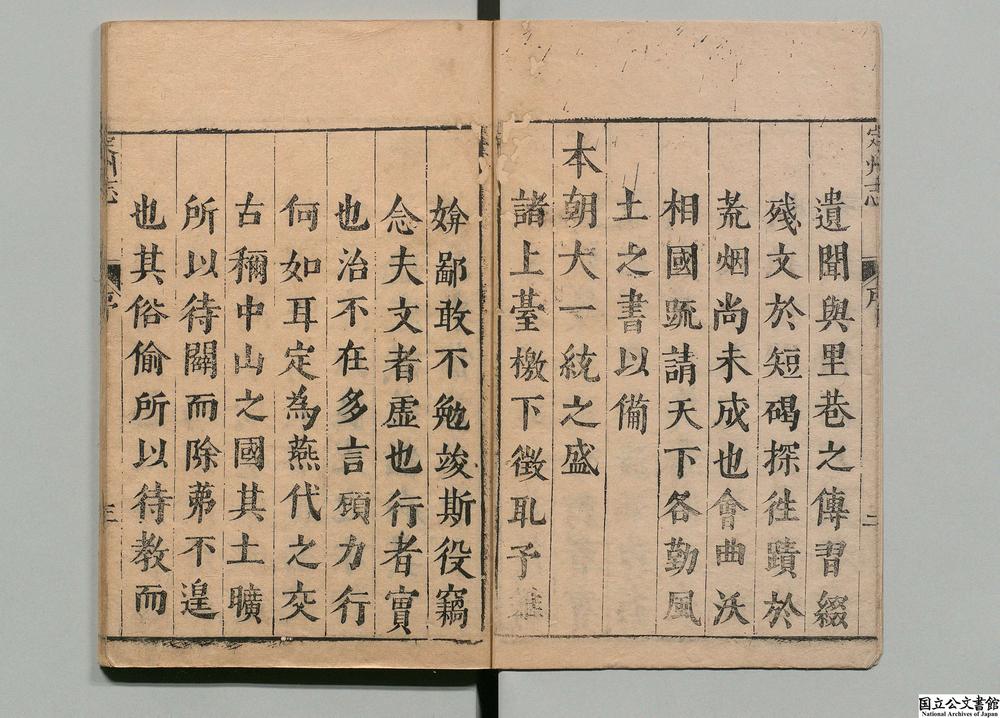 定州志
遺聞與里巷之傳習綴
殘文於短碣探徃蹟於
荒烟尚未成也會曲沃
相國疏請天下各勤風
土之書以備
本朝大一統之盛
諸上臺檄下徵取予雖
媕鄙敢不勉竣斯役竊
念夫文者虛也行者實
也治不在多言顧力行
何如耳定為燕代之交
古稱中山之國其土曠
所以待闢而除茀不遑
也其俗偷所以待教而
定州志
序
三
国立公文書館
National Archives of Japan